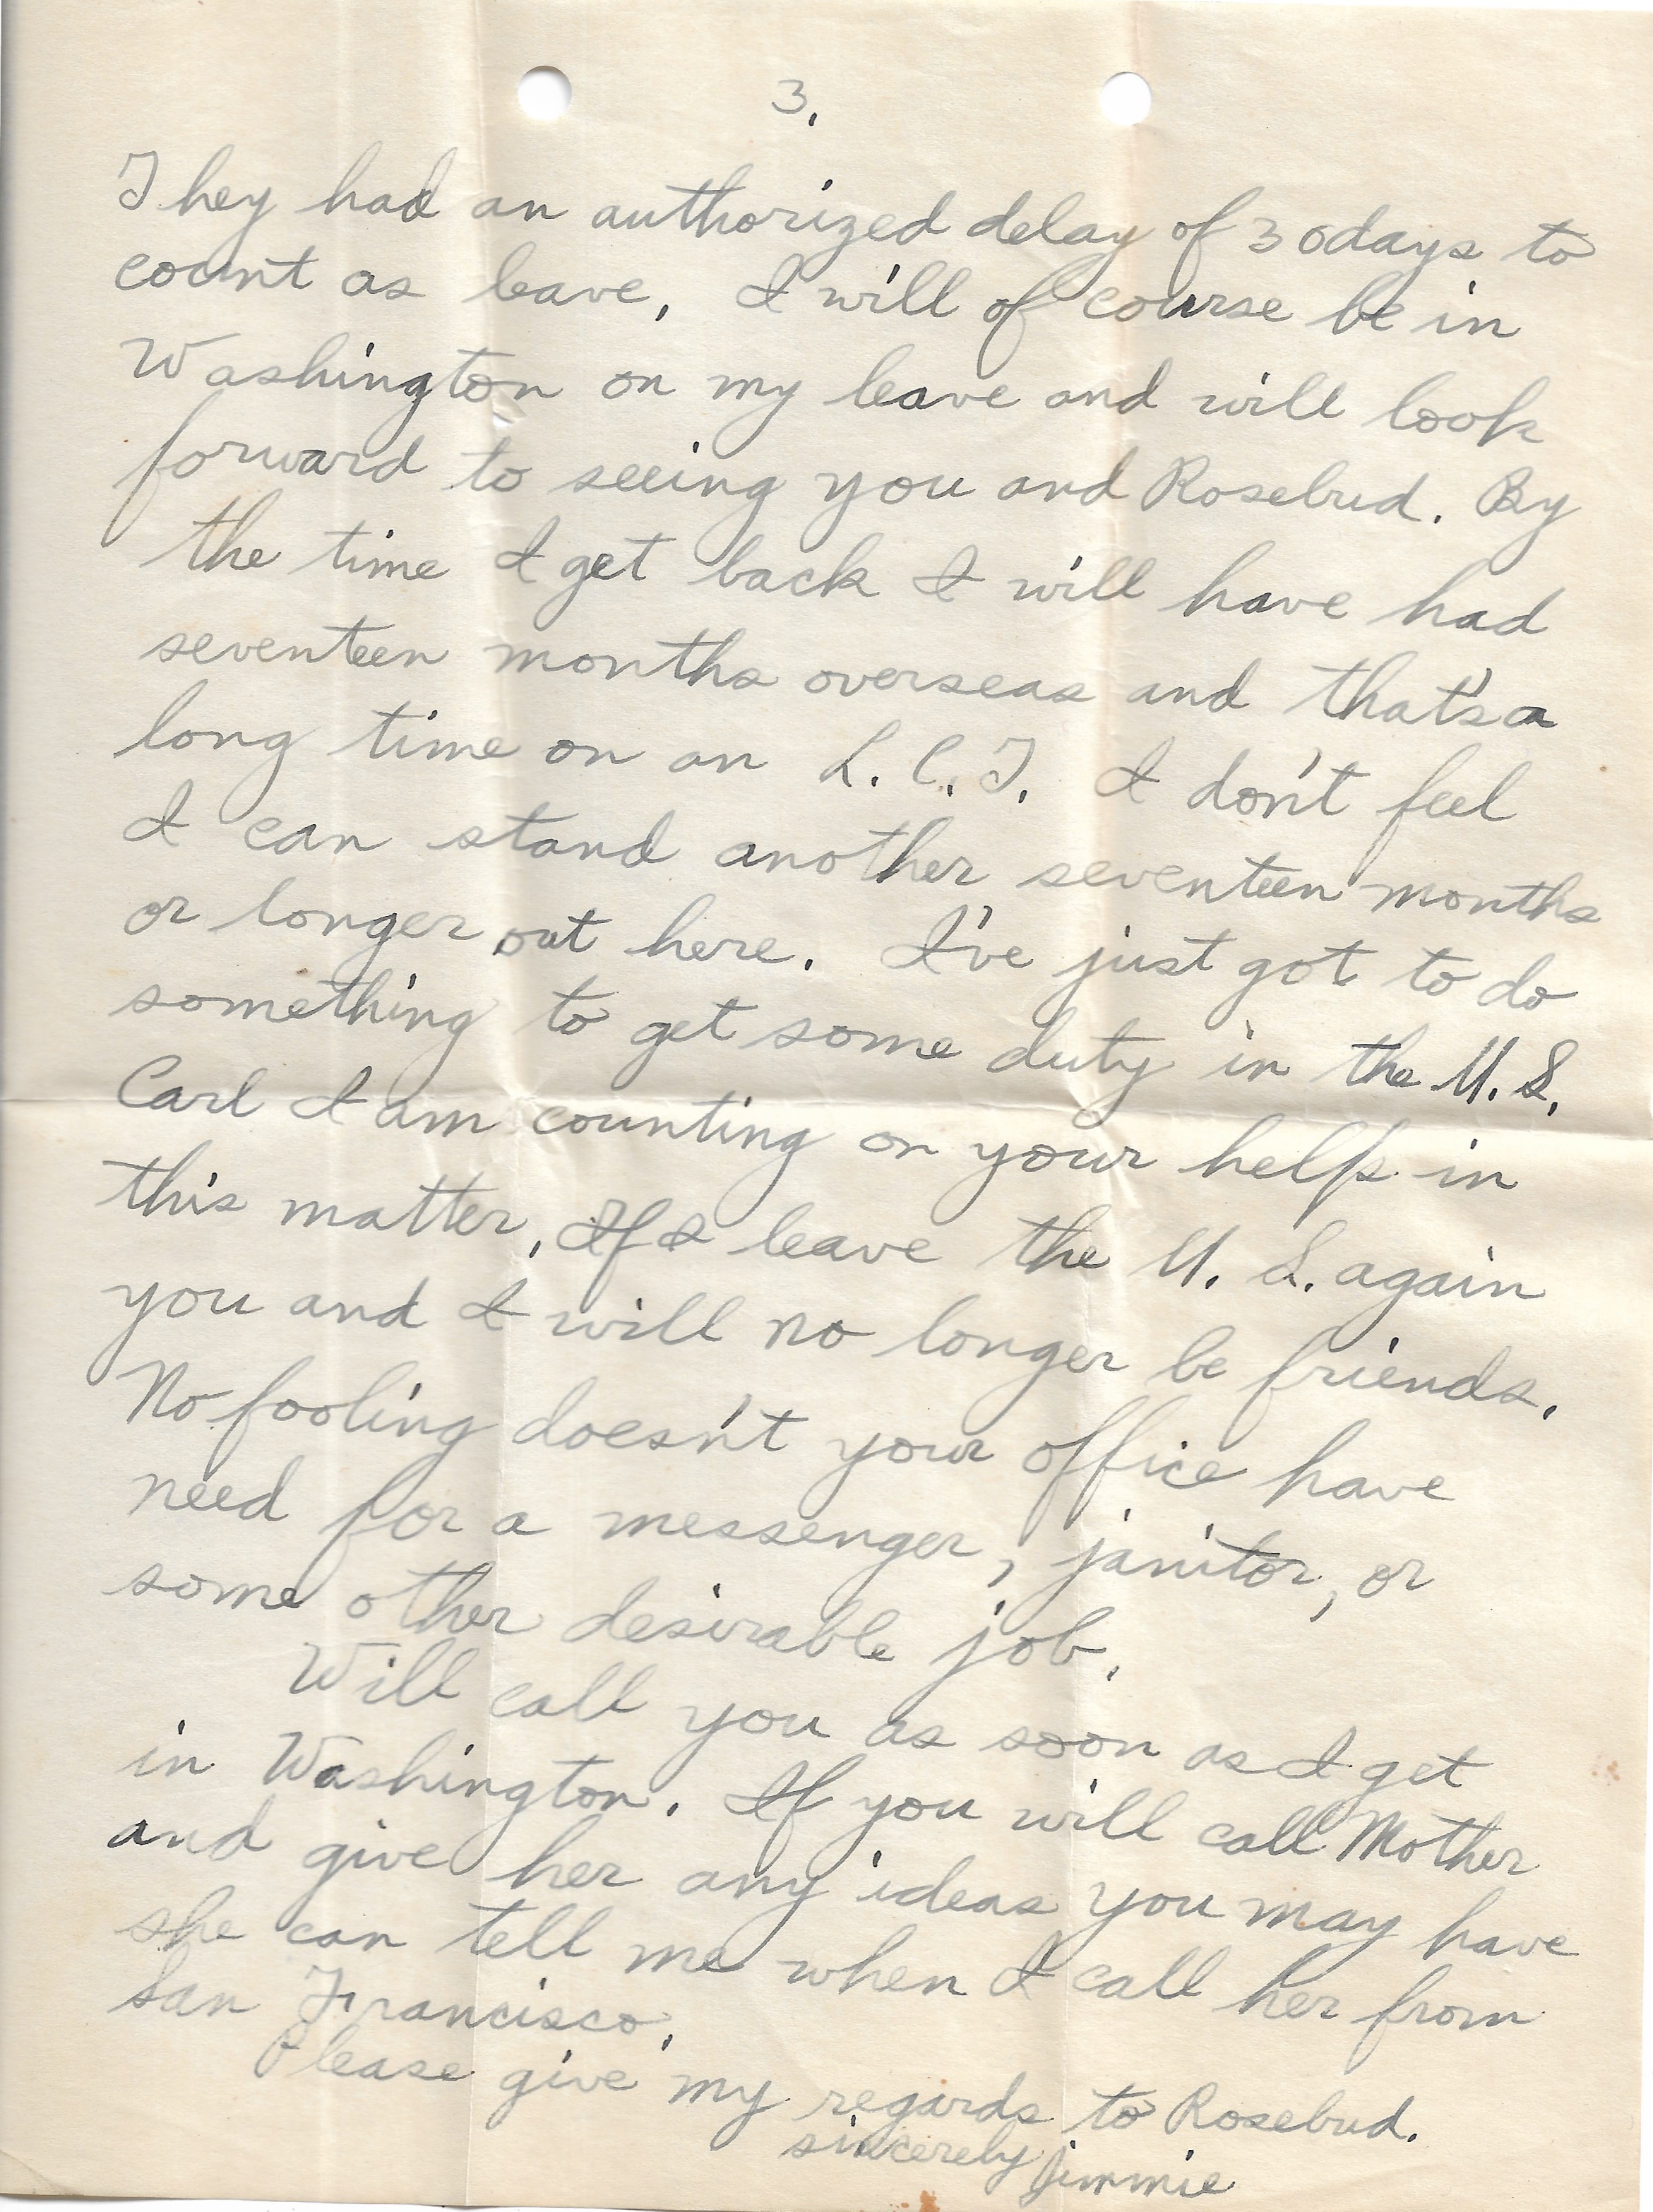 3.
They had an authorized delay of 30 days to
count as leave. I will of course be in
Washington on my leave and will look
forward to seeing you and Rosebud. By
the time I get back I will have had
seventeen months overseas and that's a
long time on an L.C.T. I don't feel
I can stand another seventeen months
or longer out here. I've just got to do
something to get some duty in the U.S.
Carl I am counting on your help in
this matter. If I leave the U.S. again
you and I will no longer be friends.
No fooling doesn't your office have
need for a messenger, janitor, or
some other desirable job.
Will call you as soon as I get
in Washington. If you will call Mother
and give her any ideas you may have
she can tell me when I call her from
San Francisco.
Please give my regards to Rosebud.
sincerely Jimmie